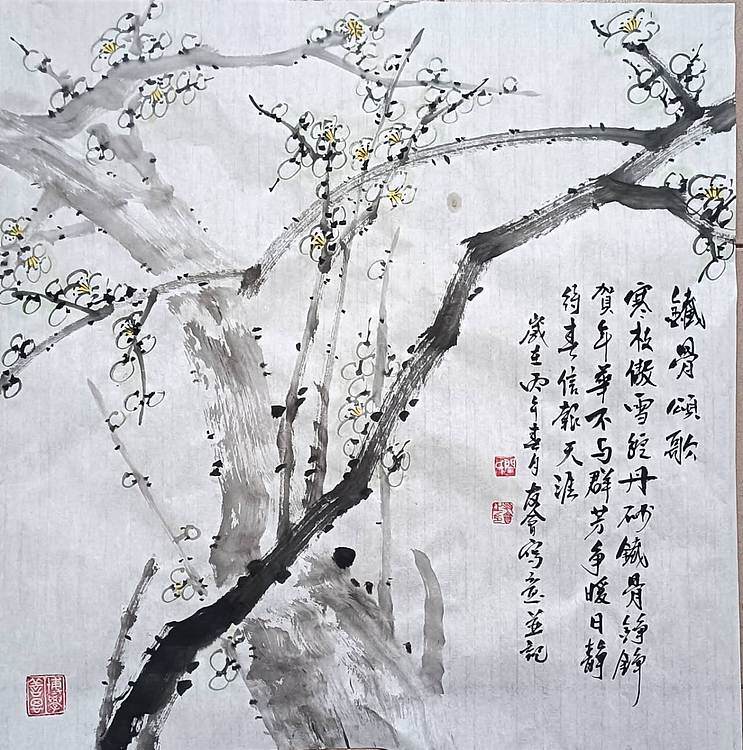 鐵骨頌歌
寒枝傲雪綻丹砂鐵骨錚錚
賀年華不与群芳争暖日静
待春信報天涯
歲在丙午春月友會寫意並記